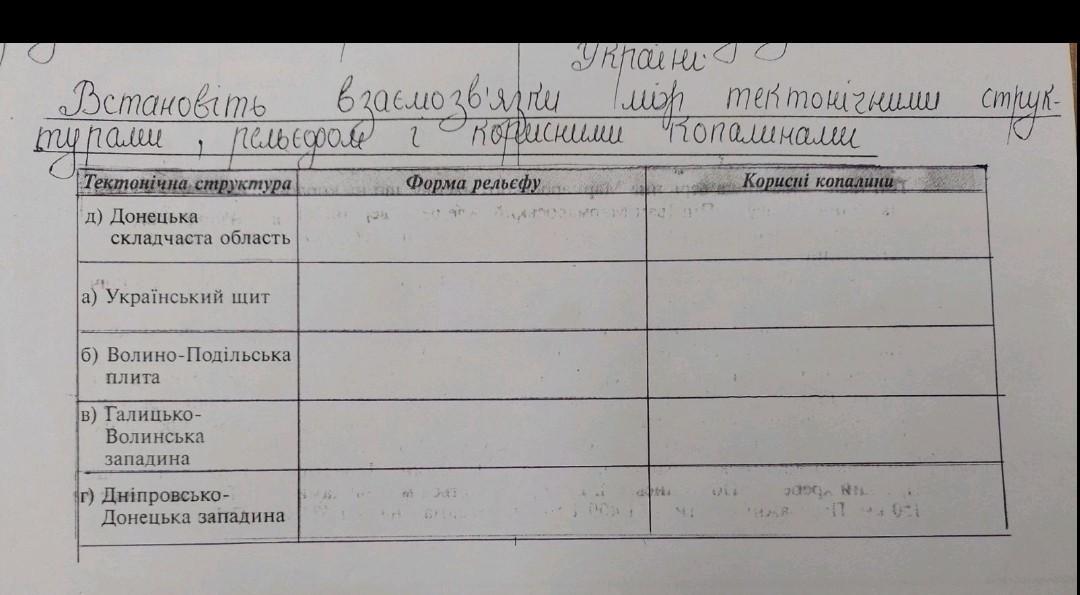 Україні
Встановіть взаємозв'язки між тектонічними струк-
турами, рельєфом і корисними копалинами
Тектонічна структура Форма рельєфу Корисні копалини
д) Донецька
складчаста область
а) Український щит
б) Волино-Подільська
плита
в) Галицько-
Волинська
западина
г) Дніпровсько-
Донецька западина